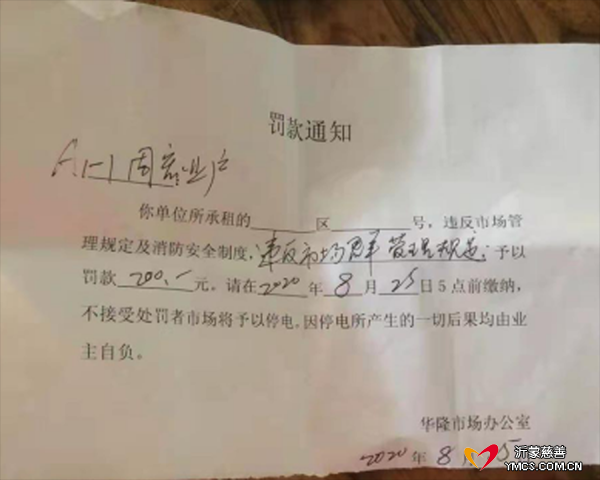 罚款通知
A1-1 周 商业户
你单位所承租的 区 号，违反市场管
理规定及消防安全制度，违反市场 管理规定；予以
罚款 200.- 元。请在2020年 8 月 25日5点前缴纳，
不接受处罚者市场将予以停电。因停电所产生的一切后果均由业
主自负。
华隆市场办公室
2020 年 8
沂蒙慈善
YMCS.COM.CN